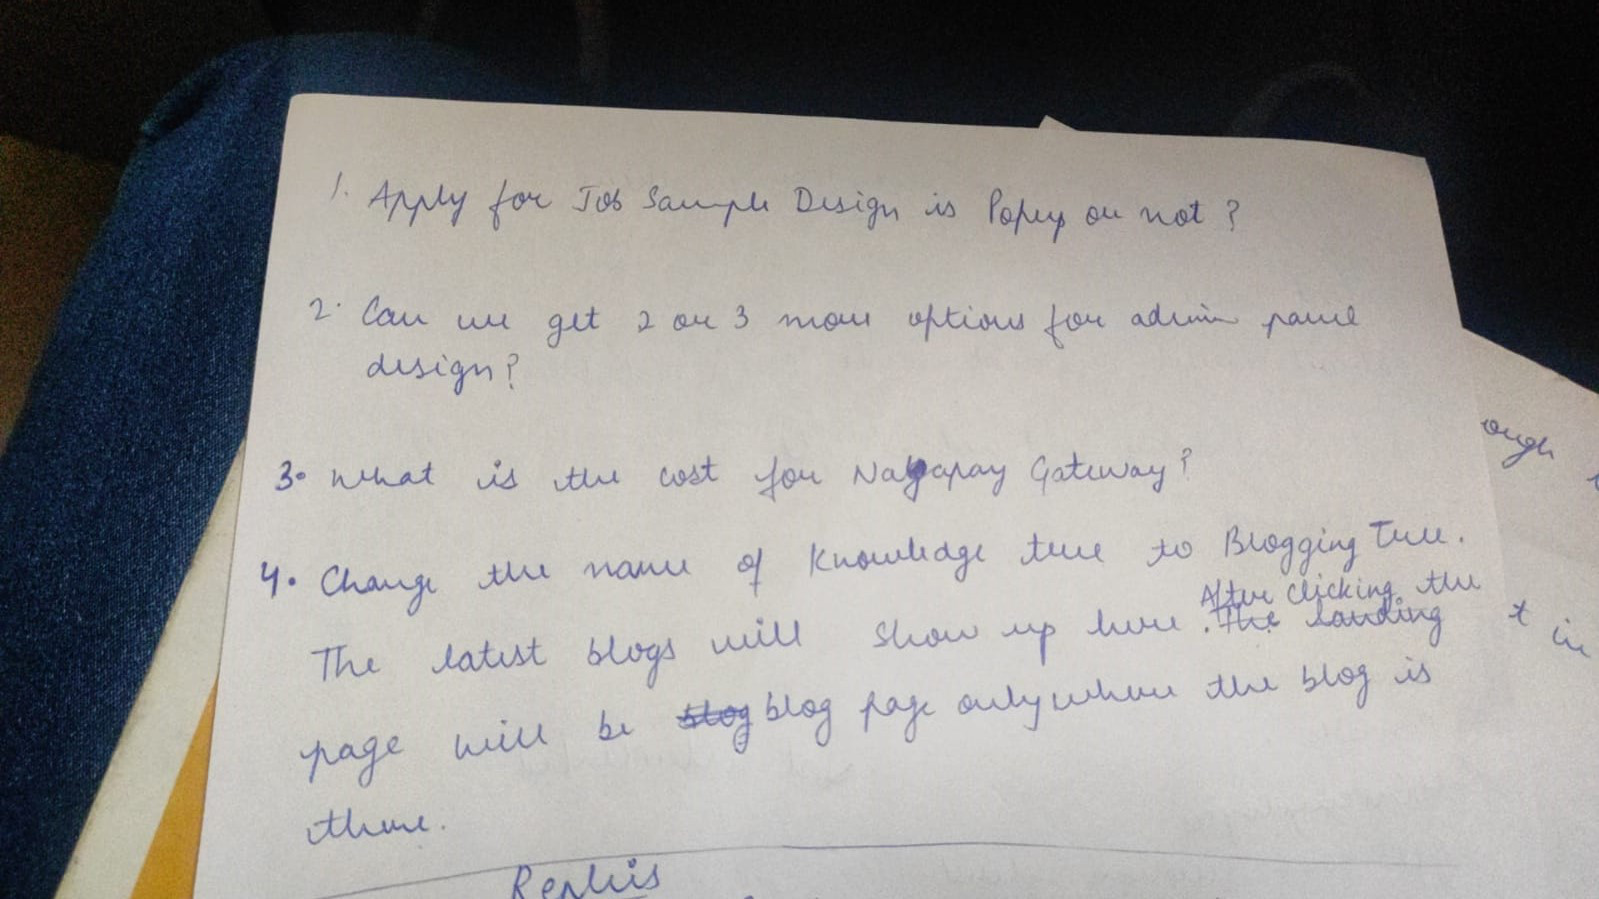 1. Apply for Job Sample Design is Popup or not?
2. Can we get 2 or 3 more options for admin panel
design?
3. What is the cost for Nagapay Gateway?
4. Change the name of Knowledge tree to Blogging Tree.
The latest blogs will show up here. The landing
After clicking the
page will be blog blog page only where the blog is
there.
Replies
ough
t in